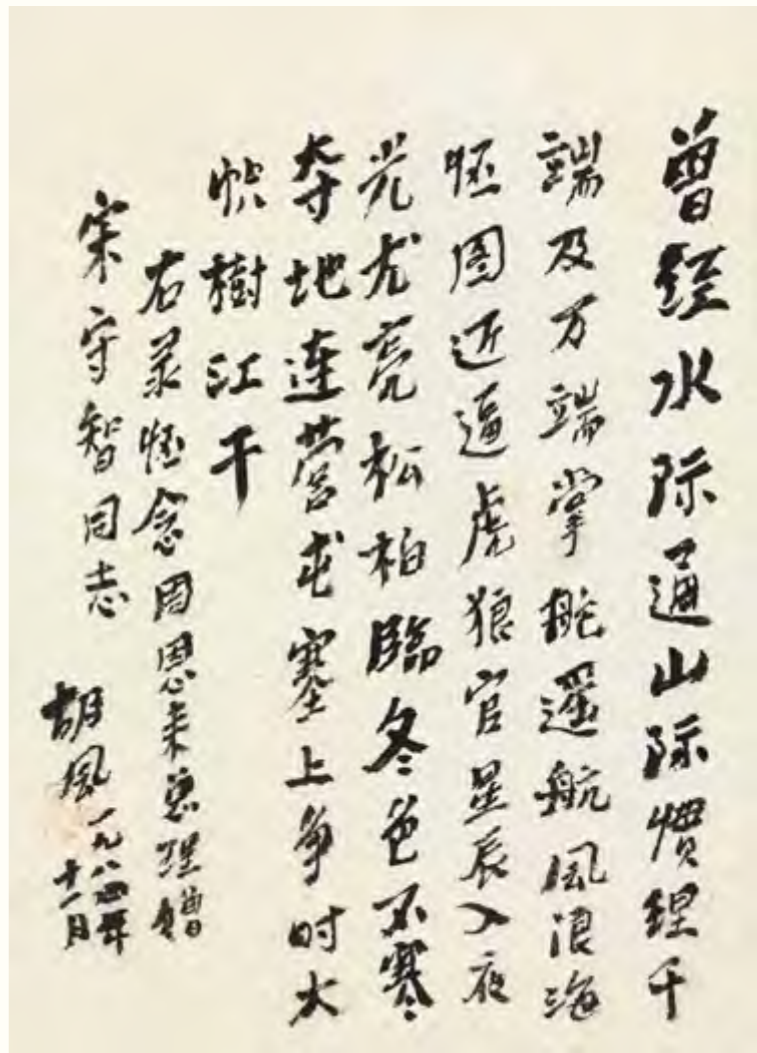 曾經水际通山际慣理千
端及万端掌舵遥航風浪海
怀图近逼虎狼官星辰入夜
光尤亮松柏臨冬色不寒
夺地連营屯塞上争时大
帜樹江干
右录怀念周恩来总理赠
宋守智同志
胡風
一九八四年
十一月